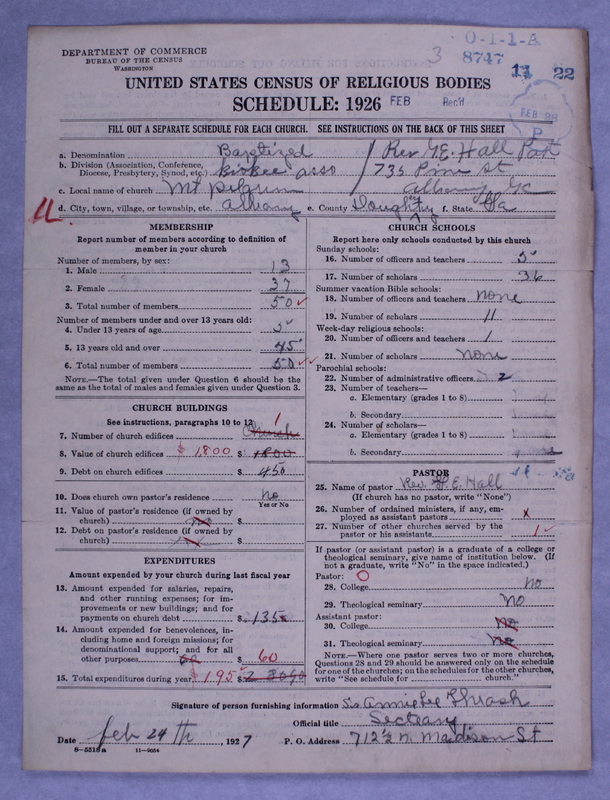 DEPARTMENT OF COMMERCE
BUREAU OF THE CENSUS
WASHINGTON
3 O-1-1-A
8747
11 22
UNITED STATES CENSUS OF RELIGIOUS BODIES
SCHEDULE: 1926 FEB Rec'd
FEB 28
P
FILL OUT A SEPARATE SCHEDULE FOR EACH CHURCH. SEE INSTRUCTIONS ON THE BACK OF THIS SHEET
a. Denomination Baptized Rev G.E. Hall Past
b. Division (Association, Conference, Diocese, Presbytery, Synod, etc.) asso 735 Pine St
c. Local name of church Mt Pilgrim Albany Ga
d. City, town, village, or township, etc. Albany e. County Doughty f. State Ga
MEMBERSHIP
Report number of members according to definition of member in your church
Number of members, by sex:
1. Male 13
2. Female 37
3. Total number of members 50
Number of members under and over 13 years old:
4. Under 13 years of age 5
5. 13 years old and over 45
6. Total number of members 50
NOTE.—The total given under Question 6 should be the same as the total of males and females given under Question 3.
CHURCH BUILDINGS
See instructions, paragraphs 10 to 12
7. Number of church edifices 1 Church
8. Value of church edifices $ 1,800 $ 1800
9. Debt on church edifices $ 450
10. Does church own pastor's residence no
Yes or No
11. Value of pastor's residence (if owned by church) no $
12. Debt on pastor's residence (if owned by church) $
EXPENDITURES
Amount expended by your church during last fiscal year
13. Amount expended for salaries, repairs, and other running expenses; for improvements or new buildings; and for payments on church debt $ 135
14. Amount expended for benevolences, including home and foreign missions; for denominational support; and for all other purposes 60 $ 60
15. Total expenditures during year $ 195 $
CHURCH SCHOOLS
Report here only schools conducted by this church
Sunday schools:
16. Number of officers and teachers 5
17. Number of scholars 36
Summer vacation Bible schools:
18. Number of officers and teachers none
19. Number of scholars 11
Week-day religious schools:
20. Number of officers and teachers 1
21. Number of scholars none
Parochial schools:
22. Number of administrative officers 2
23. Number of teachers—
a. Elementary (grades 1 to 8)
b. Secondary
24. Number of scholars—
a. Elementary (grades 1 to 8)
b. Secondary
PASTOR
25. Name of pastor Rev. G. E. Hall
(If church has no pastor, write "None")
26. Number of ordained ministers, if any, employed as assistant pastors x
27. Number of other churches served by the pastor or his assistants 1
If pastor (or assistant pastor) is a graduate of a college or theological seminary, give name of institution below. (If not a graduate, write "No" in the space indicated.)
Pastor: O
28. College no
29. Theological seminary no
Assistant pastor:
30. College no
31. Theological seminary no
NOTE.—Where one pastor serves two or more churches, Questions 28 and 29 should be answered only on the schedule for one of the churches; on the schedules for the other churches, write "See schedule for church."
Signature of person furnishing information Thrash
Official title Secteary
Date Feb 24 th, 1927 P. O. Address 712½ N. Madison St
8—5518a 11—9054